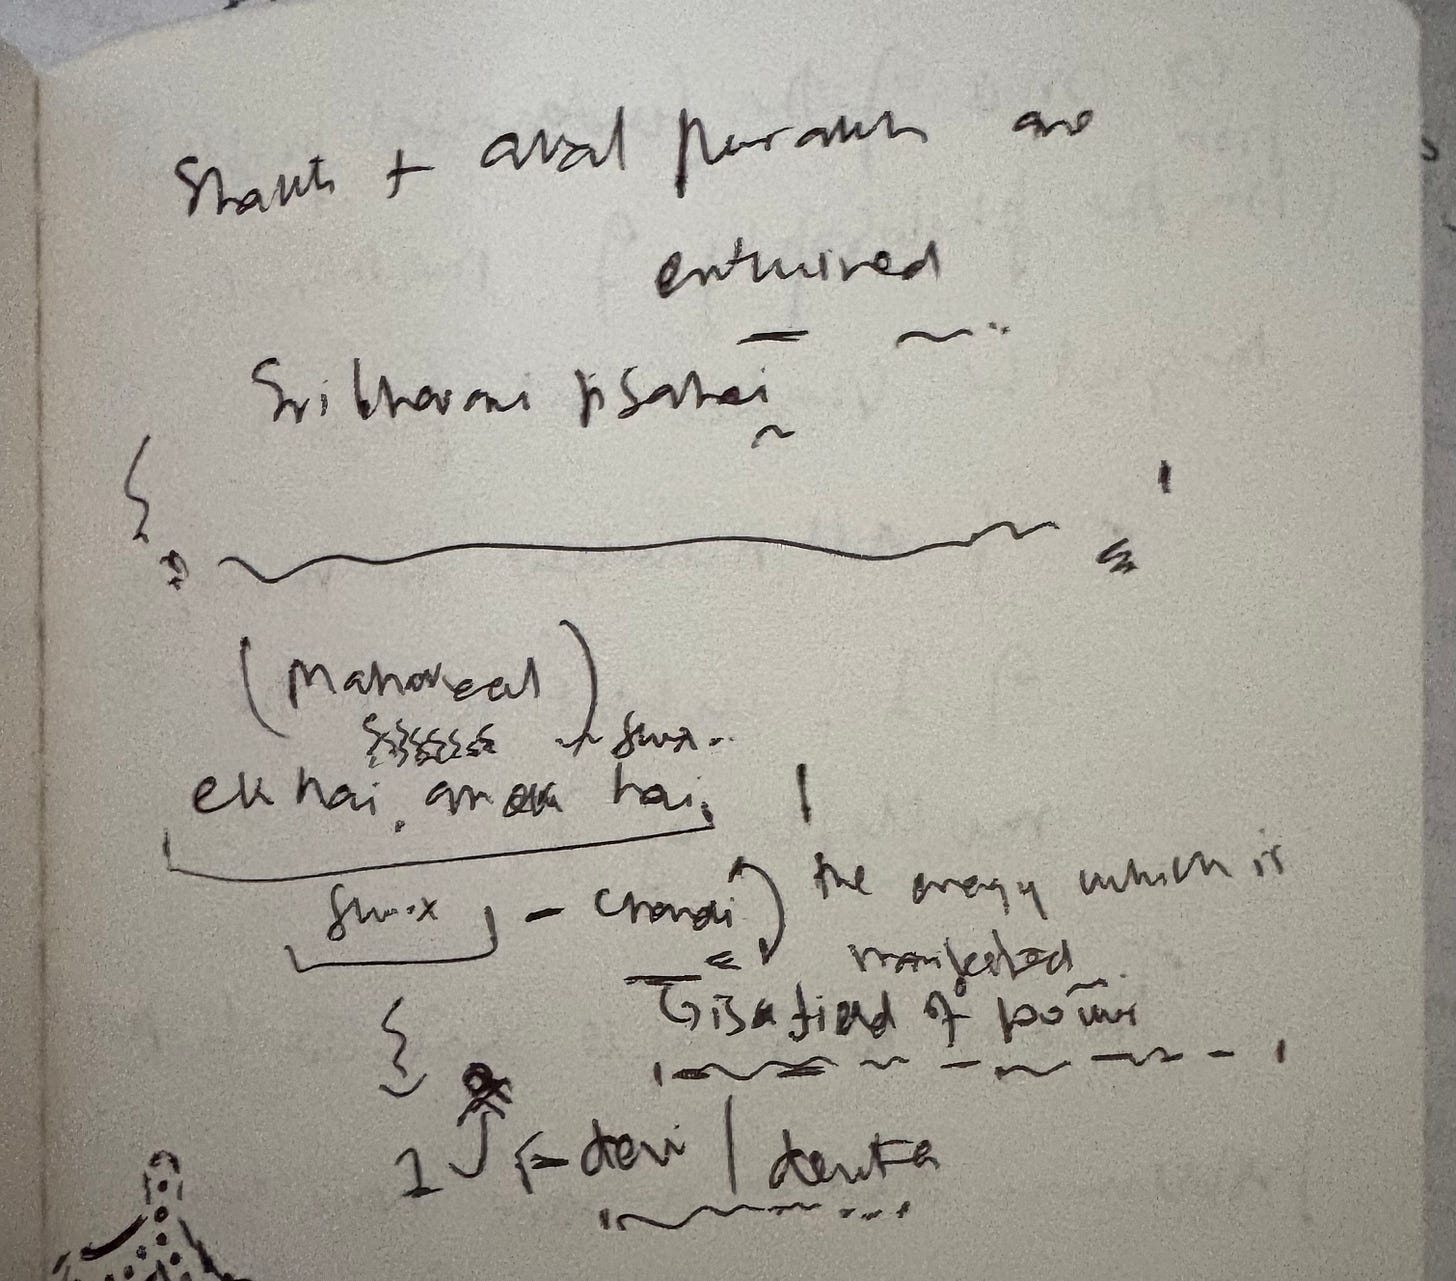 Shakti + akal purakh are
entwined
Sri bhavani ji sahai
(Mahakaal)
ek hai, anek hai.
- Chandi the energy which is
manifested
is a field of power
devi | devta